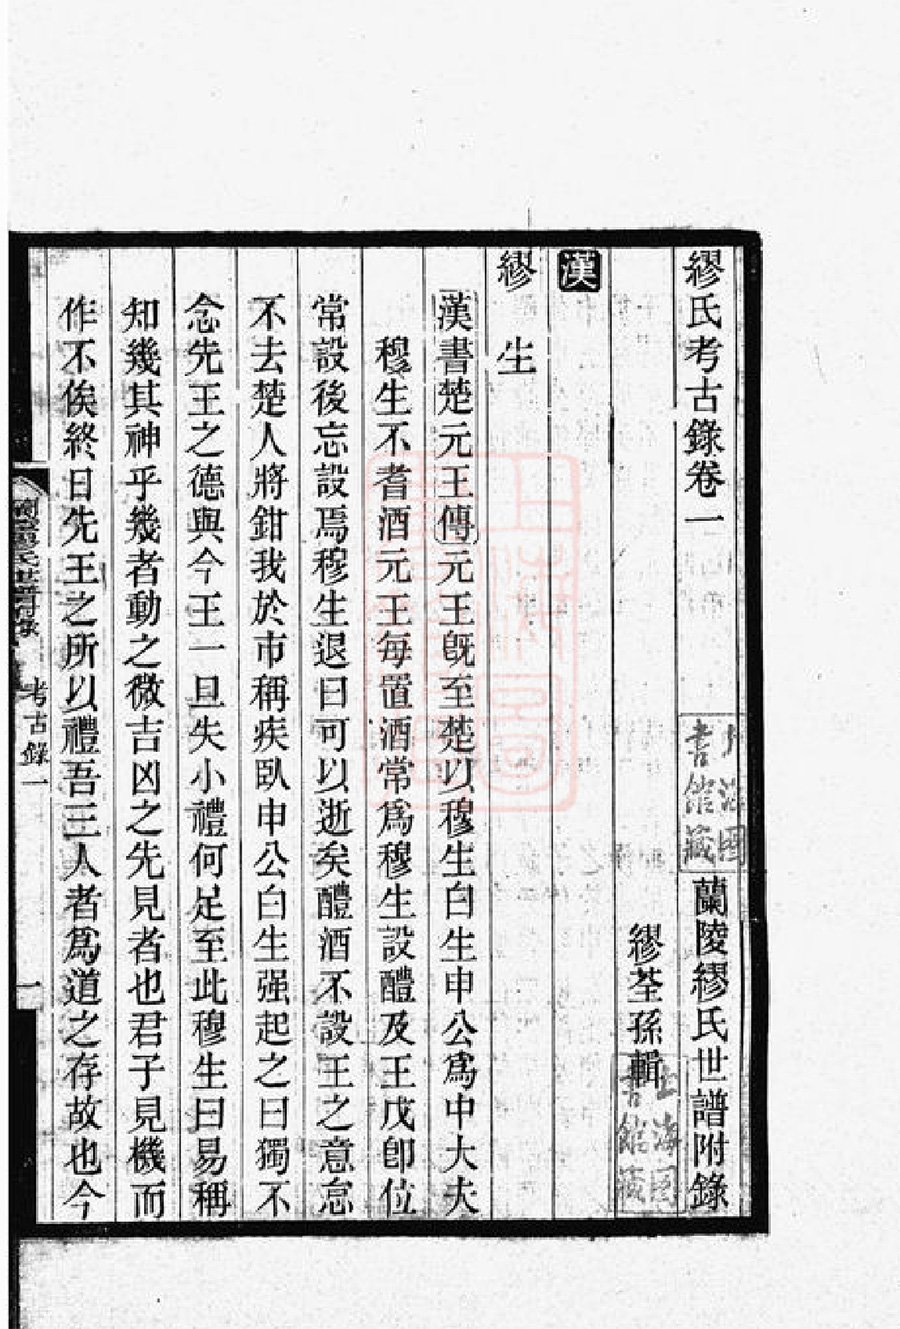 繆氏考古錄卷一 蘭陵繆氏世譜附錄
繆荃孫輯
漢
繆生
漢書楚元王傳元王旣至楚以穆生白生申公爲中大夫
穆生不耆酒元王每置酒常爲穆生設醴及王戊卽位
常設後忘設焉穆生退曰可以逝矣醴酒不設王之意怠
不去楚人將鉗我於市稱疾臥申公白生强起之曰獨不
念先王之德與今王一旦失小禮何足至此穆生曰易稱
知幾其神乎幾者動之微吉凶之先見者也君子見機而
作不俟終日先王之所以禮吾三人者爲道之存故也今
考古錄一
一
上海圖書館藏
上海圖書館藏
上海圖書館藏